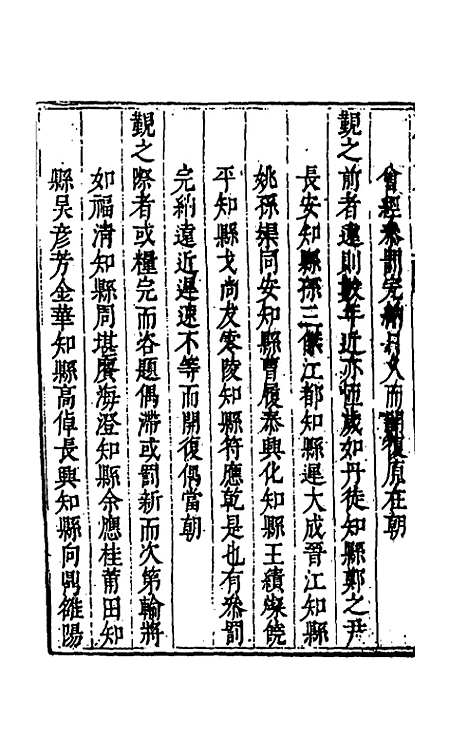 會經叅罰完納日久而開復原在朝
覲之前者遠則數年近亦匝歲如丹徒知縣鄭之尹
長安知縣孫三傑江都知縣遲大成晉江知縣
姚孫榘同安知縣曹履泰興化知縣王績燦饒
平知縣戈尚友零陵知縣符應乾是也有叅罰
完納遠近遲速不等而開復偶當朝
覲之際者或糧完而咨題偶滯或罰新而次第輸將
如福清知縣周堪賡海澄知縣余應桂莆田知
縣吴彦芳金華知縣高倬長興知縣向鼎雒陽